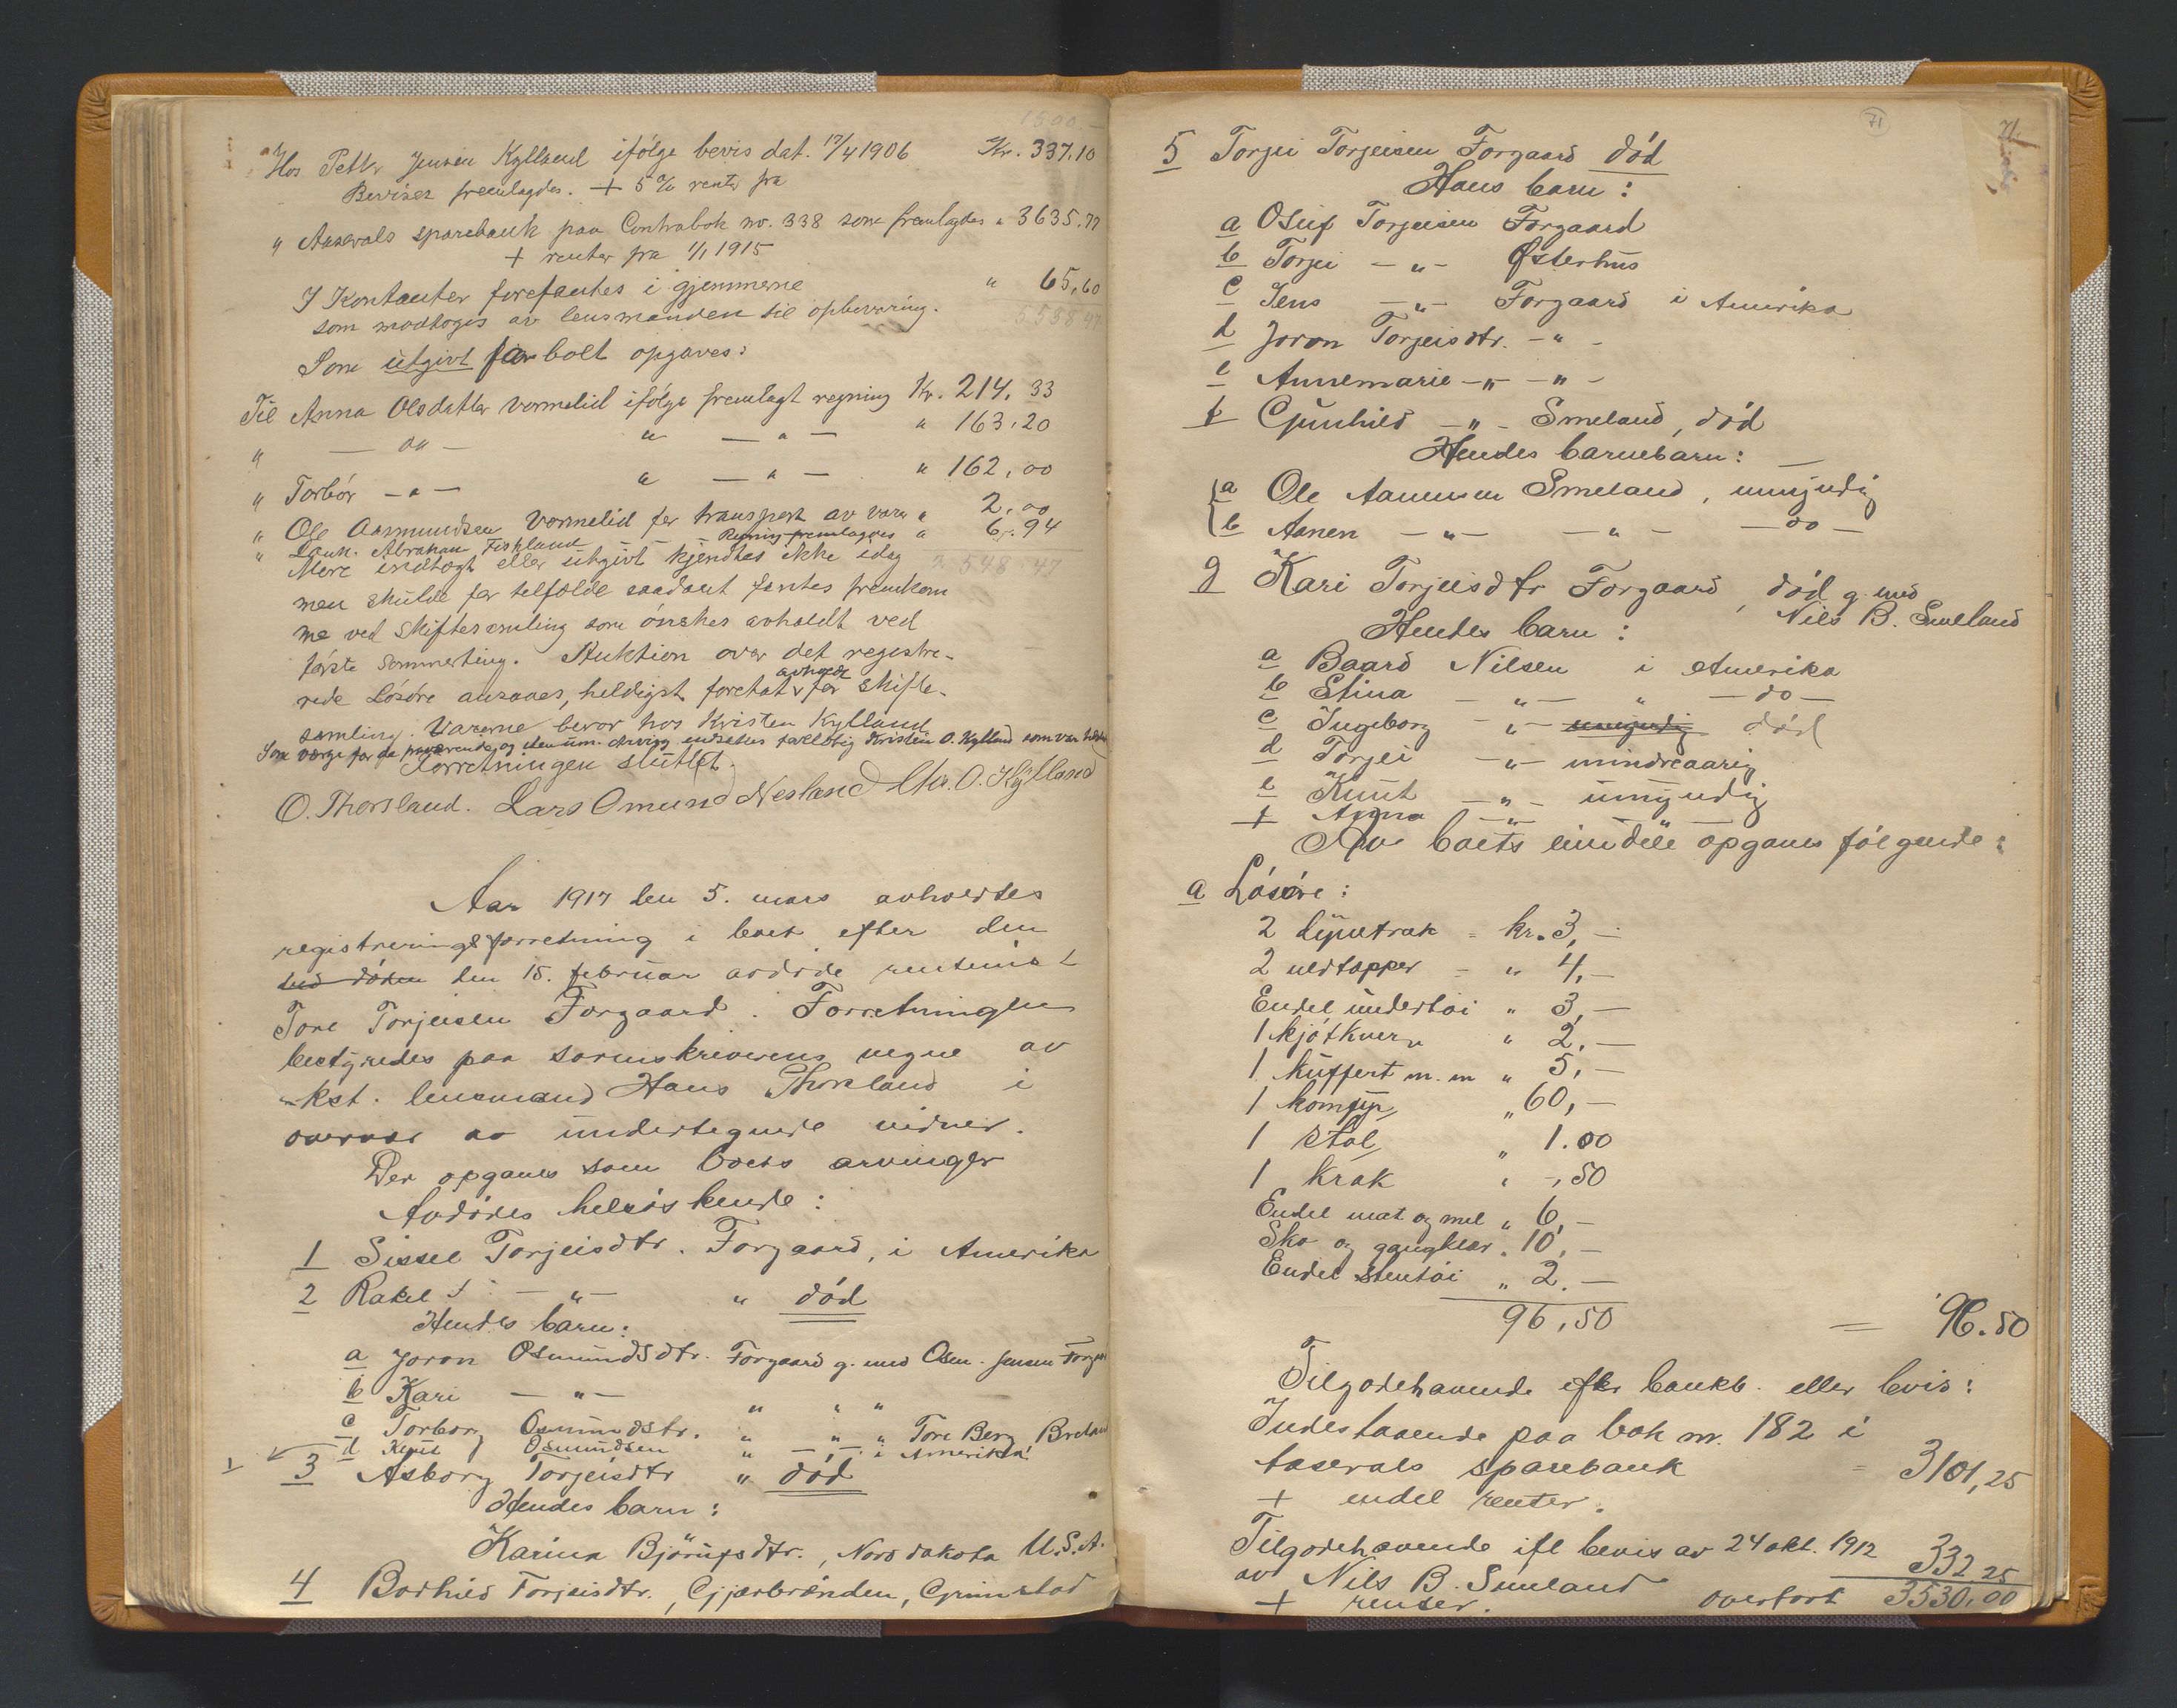 1500.-
Hos Petter Jensen Kylland ifølge bevis dat. 17/4 1906 Kr. 337.10
Beviset fremlagdes. + 5 % rente fra
" Aaserals sparebank paa Contrabok no. 338 som fremlagdes " 3635.77
+ renter fra 1/1 1915
I Kontanter forefantes i gjemmerne " 65,60
som modtoges av lensmanden til opbevaring. 5538 47
Som utgivt for boet opgaves:
Til Anna Olsdatter Vormelid ifølge fremlagt regning Kr. 214,33
" — do — " — " — " 163.20
" Torbör — " — " — " — " 162,00
" Ole Aasmundsen Vormelid for transport av varer " 2,00
" Lank. Abraham Fiskland — Regning fremlagdes " 6.94
Mere indtægt eller utgivt kjendtes ikke idag 548 47
men skulde for tilfælde saadant fantes fremkom
me ved skiftesamling som ønskes avholdt ved
første sommerting. Auktion over det registre-
rede Løsøre ansaaes, heldigst foretat avholdt før skifte-
samling. Varerne beror hos Kristen Kylland
Som værge for de fraværende og den um. Arving indsattes foreløbig Kristen O. Kylland som var tilstede
Forretningen sluttet.
O. Thorsland. Lars Omund Nesland Chr. O. Kylland
Aar 1917 den 5. mars avholdtes
registreringsforretning i boet efter den
ved døden den 15. februar avdøde rentenist
Tore Torjeisen Forgaard. Forretningen
bestyredes paa sorenskriverens vegne av
kst. lensmand Hans Thorsland i
overvær av undertegnede vidner.
Der opgaves som boets arvinger
Avdödes helsöskende:
1 Sissel Torjeisdtr. Forgaard, i Amerika
2 Rakel — " — " död
Hendes barn:
a Joron Osmundsdtr. Forgaard g. med Osm. Jensen Forgaard
b Kari — " — " " "
c Torborg Osmundsdtr. " " " Tore Berg Breland
d Knut Osmundsen " — " — i Amerika
3 Asborg Torjeisdtr " död
Hendes barn:
Karina Bjórulfsdtr., Nord dakota U.S.A.
4 Borhild Torjeisdtr., Gjærbrönden, Grimstad
71
71
5 Torjei Torjeisen Forgaard död
Hans barn:
a Osuf Torjeisen Forgaard
b Torjei — " — Østerhus
c Jens — " — Forgaard i Amerika
d Joron Torjeisdtr. — " —
e Annemarie — " — " —
f Gunhild — " — Smeland, död
Hendes barnebarn:
a Ole Aanensen Smeland, umyndig
b Aanen — " — — " — — do —
g Kari Torjeisdtr Forgaard, död g. med
Nils B. Smeland
Hendes barn:
a Baard Nilsen i Amerika
b Stina — " — " — do —
c Ingeborg — " — umyndig död
d Torjei — " — mindreaarig
e Knut — " — umyndig
f Anna — " — "
Av boets eiendele opgaves følgende:
a Lösöre:
2 dynetræk = kr. 3,—
2 uldtæpper = " 4,—
Endel undertöi " 3,—
1 kjötkvern " 2.—
1 kuffert m. m " 5,—
1 komfyr " 60,—
1 stol " 1.00
1 krak " -,50
Endel mat og mel " 6,—
Sko og gangklær " 10,—
Endel stentöi " 2.—
96,50 = 96.50
Tilgodehavende efter bankb. eller bevis:
Indestaaende paa bok nr. 182 i
Aaserals sparebank = 3101,25
+ endel renter.
Tilgodehavende ifl bevis av 24 okt. 1912 332 25
av Nils B. Smeland
+ renter. overfört 3530,00